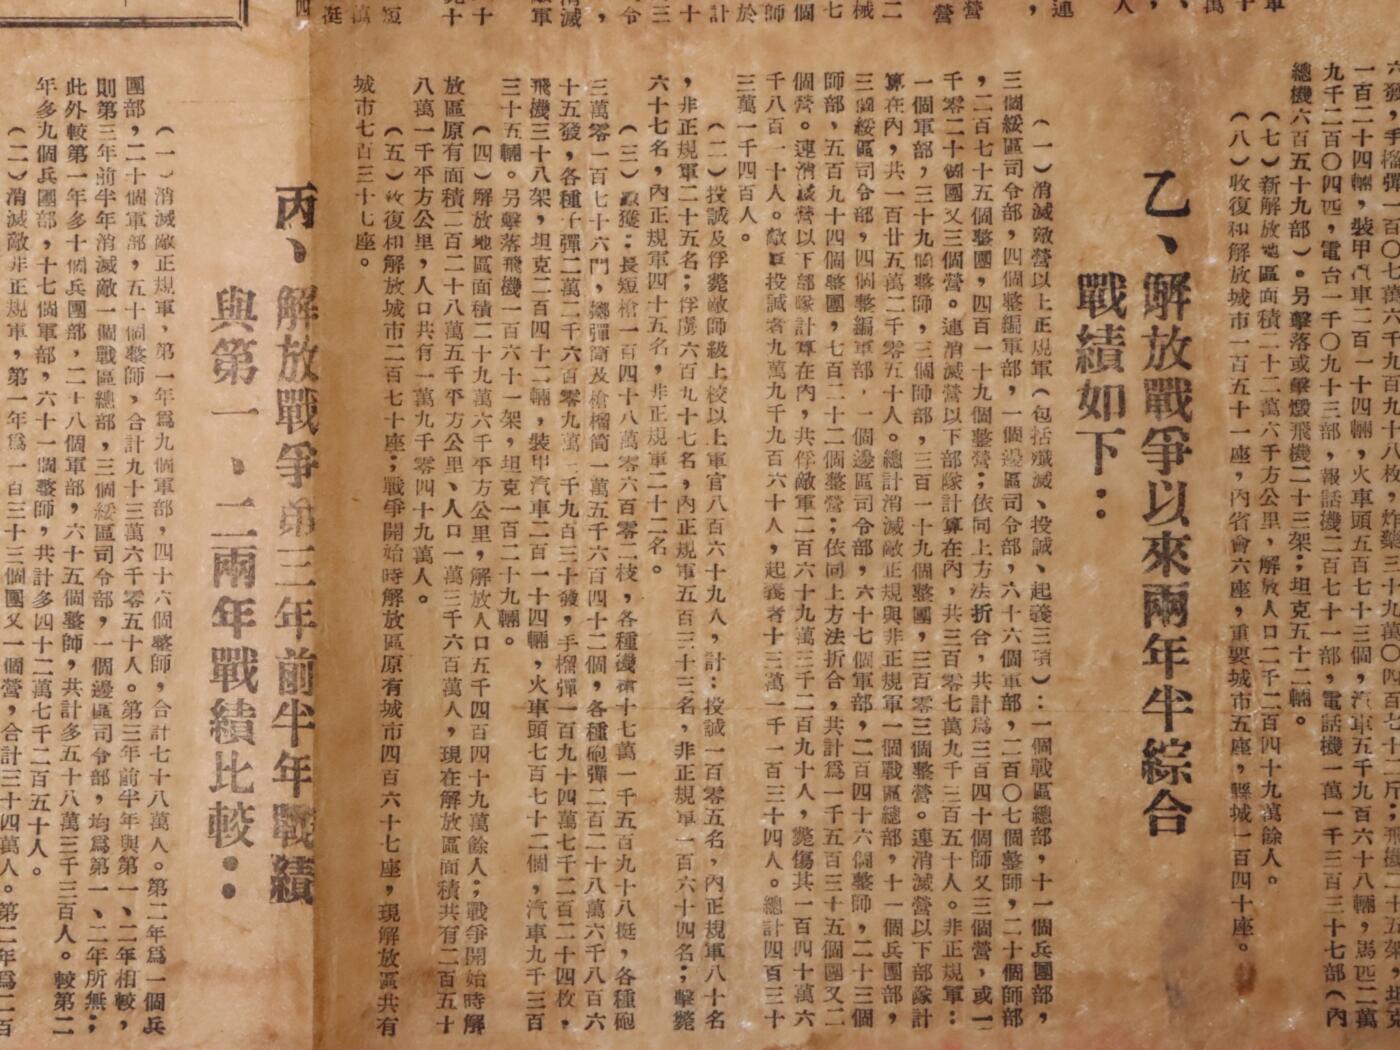 六發，手榴彈一百〇七萬六千九百九十八枚，炸藥三十九萬〇四百七十二斤；飛機二十五架，坦克
一百二十四輛，裝甲汽車二百一十四輛，火車頭五百七十三個，汽車五千九百六十八輛，馬匹二萬
九千二百〇四匹，電台一千〇九十三部，報話機二百七十一部，電話機一萬一千三百三十七部（內
總機六百五十九部）。另擊落或擊燬飛機二十三架；坦克五十二輛。
（七）新解放地區面積二十二萬六千方公里，解放人口二千二百四十九萬餘人。
（八）收復和解放城市一百五十一座，內省會六座，重要城市五座，縣城一百四十座。
乙、解放戰爭以來兩年半綜合
戰績如下：
（一）消滅敵營以上正規軍（包括殲滅、投誠、起義三項）：一個戰區總部，十一個兵團部，
三個綏區司令部，四個整編軍部，一個邊區司令部，六十六個軍部，二百〇七個整師，二十個師部
，二百七十五個整團，四百一十九個整營；依同上方法折合，共計爲三百四十個師又三個營，或一
千零二十個團又三個營。連消滅營以下部隊計算在內，共三百零七萬九千三百五十人。非正規軍：
一個軍部，三十九個整師，三個師部，三百一十九個整團，三百零三個整營。連消滅營以下部隊計
算在內，共一百廿五萬二千零五十人。總計消滅敵正規與非正規軍一個戰區總部，十一個兵團部，
三個綏區司令部，四個整編軍部，一個邊區司令部，六十七個軍部，二百四十六個整師，二十三個
師部，五百九十四個整團，七百二十二個整營；依同上方法折合，共計爲一千五百三十五個團又二
個營。連消滅營以下部隊計算在內，共俘敵軍二百六十九萬三千二百九十人，斃傷其一百四十萬六
千八百一十人。敵軍投誠者九萬九千九百六十人，起義者十三萬一千一百三十四人。總計四百三十
三萬一千四百人。
（二）投誠及俘斃敵師級上校以上軍官八百六十九人，計：投誠一百零五名，內正規軍八十名
，非正規軍二十五名；俘虜六百九十七名，內正規軍五百三十三名，非正規軍一百六十四名；擊斃
六十七名，內正規軍四十五名，非正規軍二十二名。
（三）繳獲：長短槍一百四十八萬零六百零二枝，各種機槍十七萬一千五百九十八挺，各種砲
三萬零一百七十六門，擲彈筒及槍榴筒一萬五千六百四十二個，各種砲彈二百二十八萬六千八百六
十五發，各種子彈二萬二千六百零九萬三千九百三十發，手榴彈一百九十四萬七千二百二十四枚，
飛機三十八架，坦克二百四十二輛，裝甲汽車二百一十四輛，火車頭七百七十二個，汽車九千三百
三十五輛。另擊落飛機一百六十一架，坦克一百二十九輛。
（四）解放地區面積二十九萬六千平方公里，解放人口五千四百四十九萬餘人；戰爭開始時解
放區原有面積二百二十八萬五千平方公里、人口一萬三千六百萬人，現在解放區面積共有二百五十
八萬一千平方公里，人口共有一萬九千零四十九萬人。
（五）收復和解放城市二百七十座；戰爭開始時解放區原有城市四百六十七座，現解放區共有
城市七百三十七座。
丙、解放戰爭第三年前半年戰績
與第一、二兩年戰績比較：
（一）消滅敵正規軍，第一年爲九個軍部，四十六個整師，合計七十八萬人。第二年爲一個兵
團部，二十個軍部，五十個整師，合計九十三萬六千零五十人。第三年前半年與第一、二年相較，
則第三年前半年消滅敵一個戰區總部，三個綏區司令部，一個邊區司令部，均爲第一、二年所無；
此外較第一年多十個兵團部，二十八個軍部，六十五個整師，共計多五十八萬三千三百人。較第二
年多九個兵團部，十七個軍部，六十一個整師，共計多四十二萬七千二百五十人。
（二）消滅敵非正規軍，第一年爲一百三十三個團又一個營，合計三十四萬人。第二年爲二百